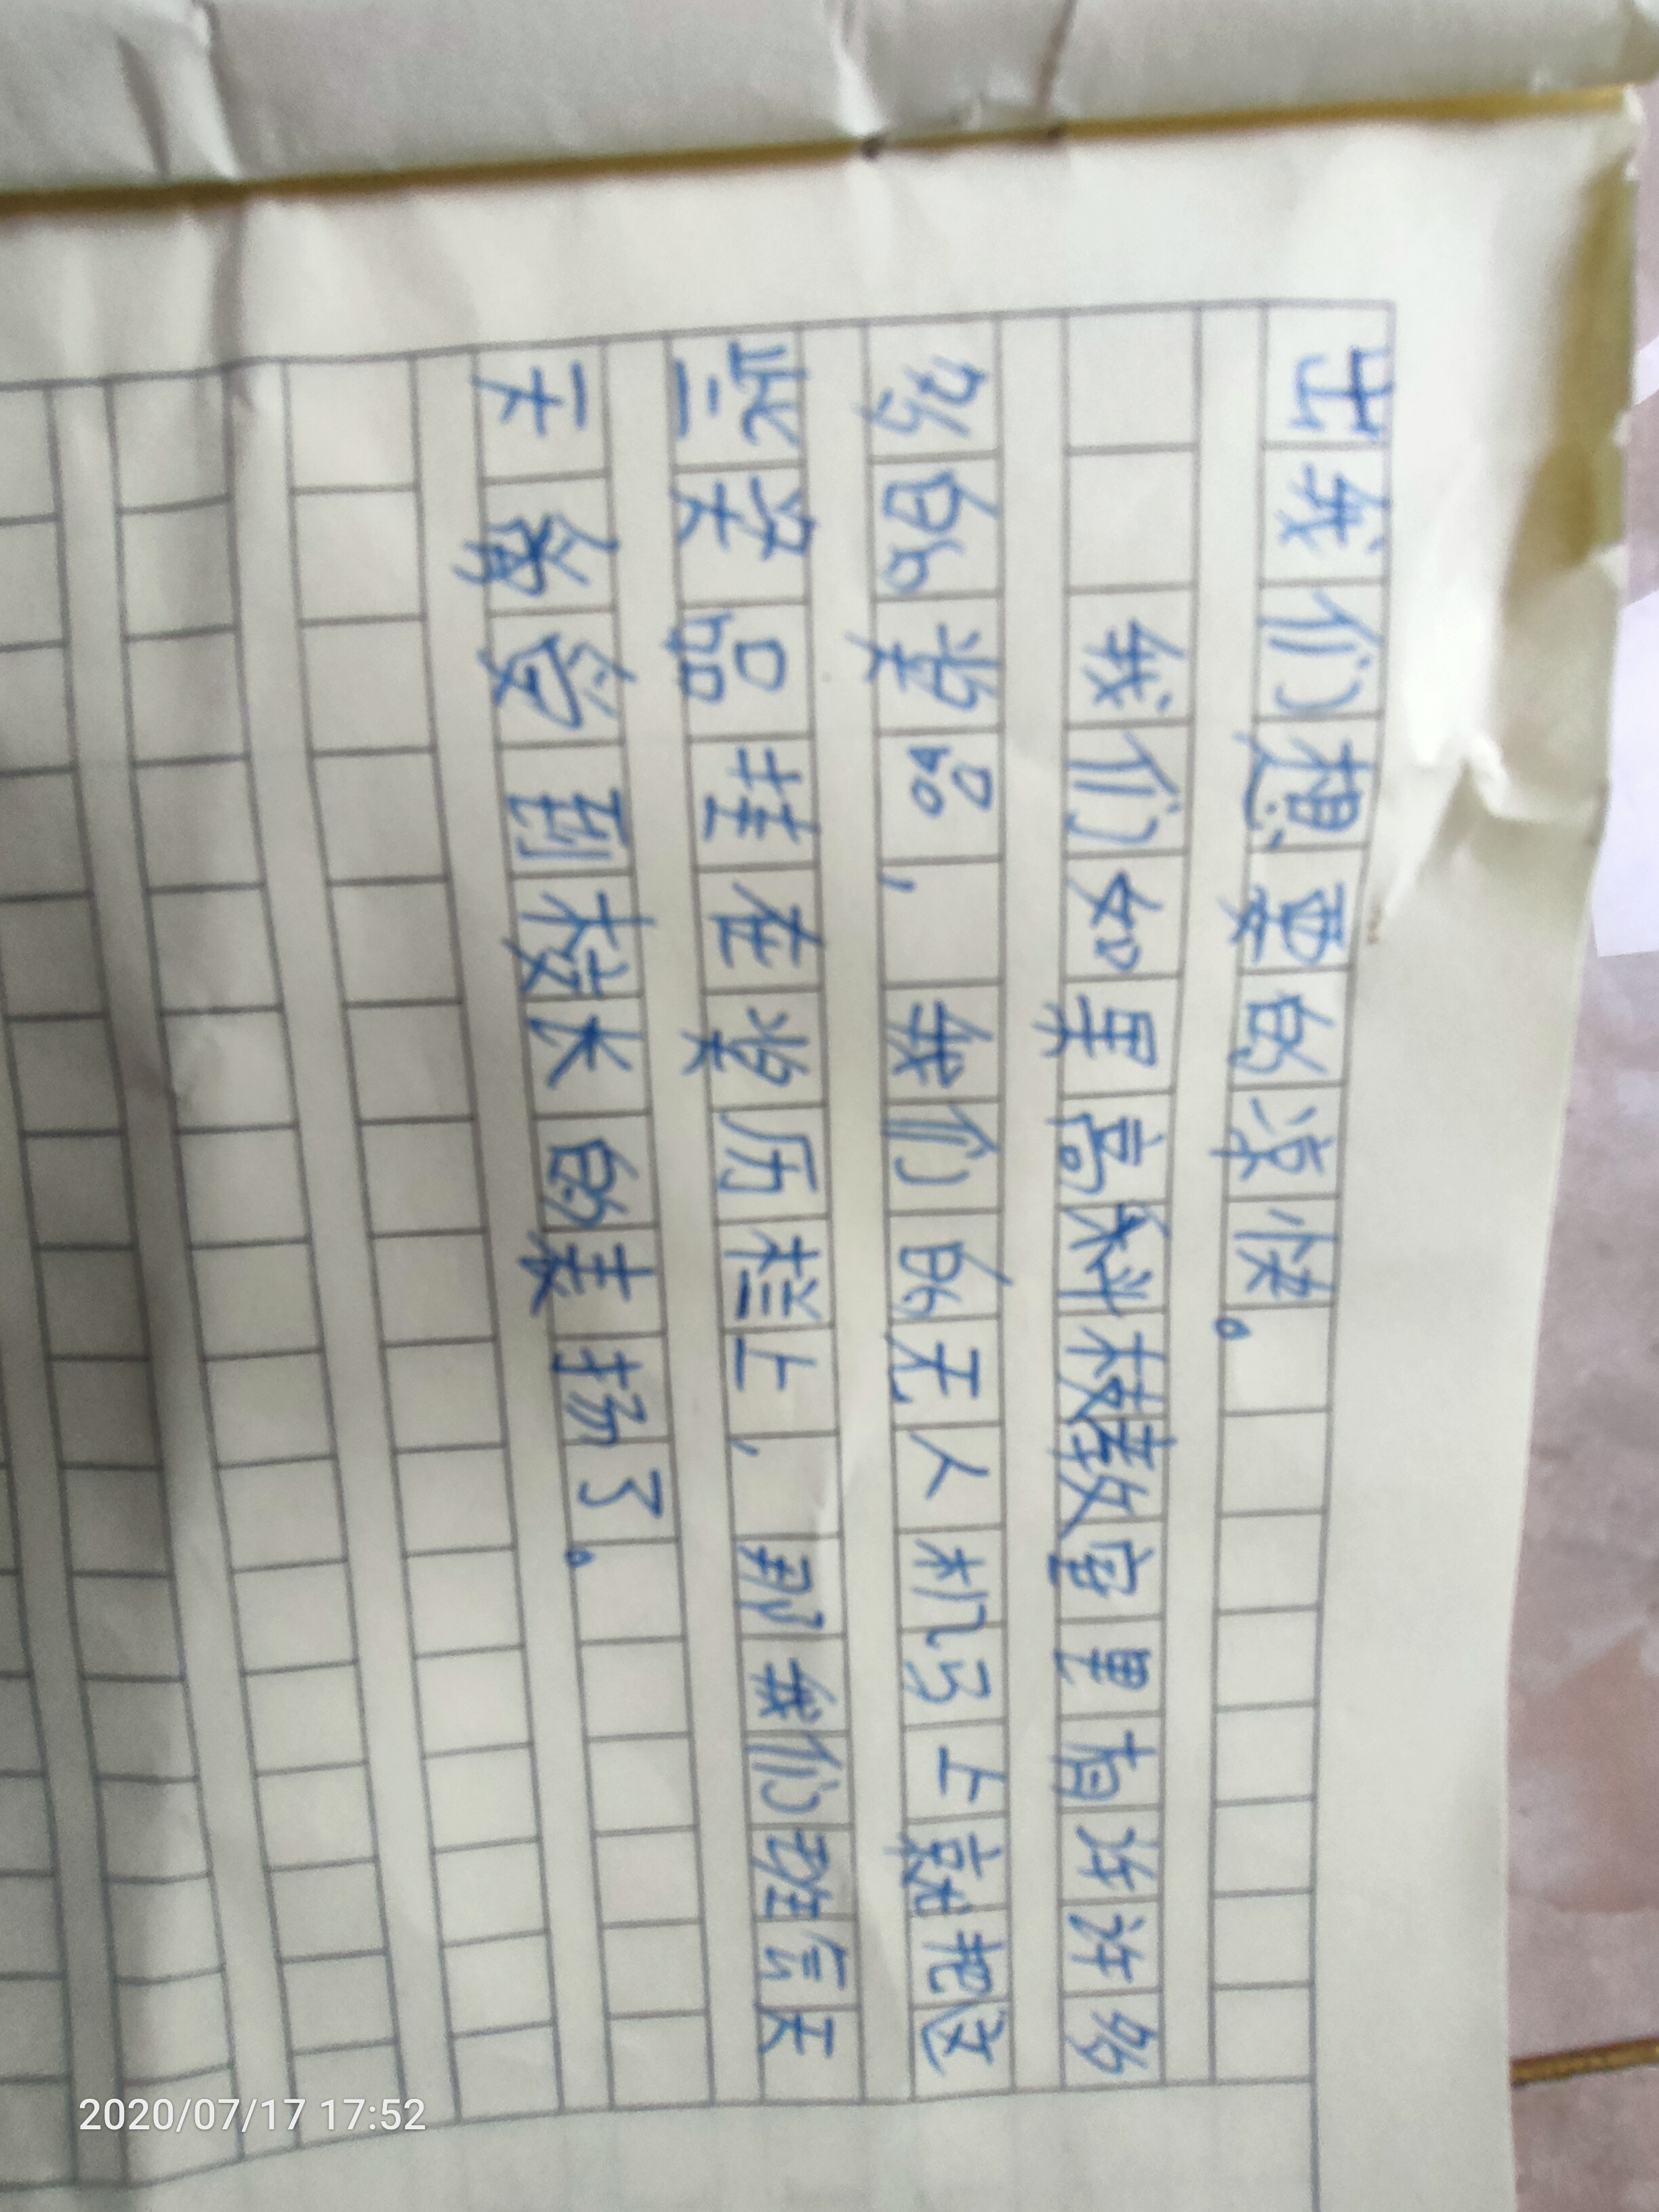 出我们想要的凉快。
我们如果高科技教室里有许许
多的奖品，我们的无人机马上就把这
些奖品挂在奖历栏上，那我们班会天
天备受到校长的表扬了。
2020/07/17 17:52